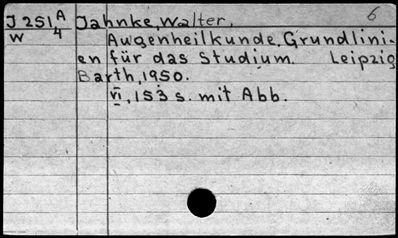 6
J 251 A/4 Jahnke, Walter.
W Augenheilkunde, Grundlini-
en für das Studium. Leipzig
Barth, 1950.
VI, 153 s. mit Abb.